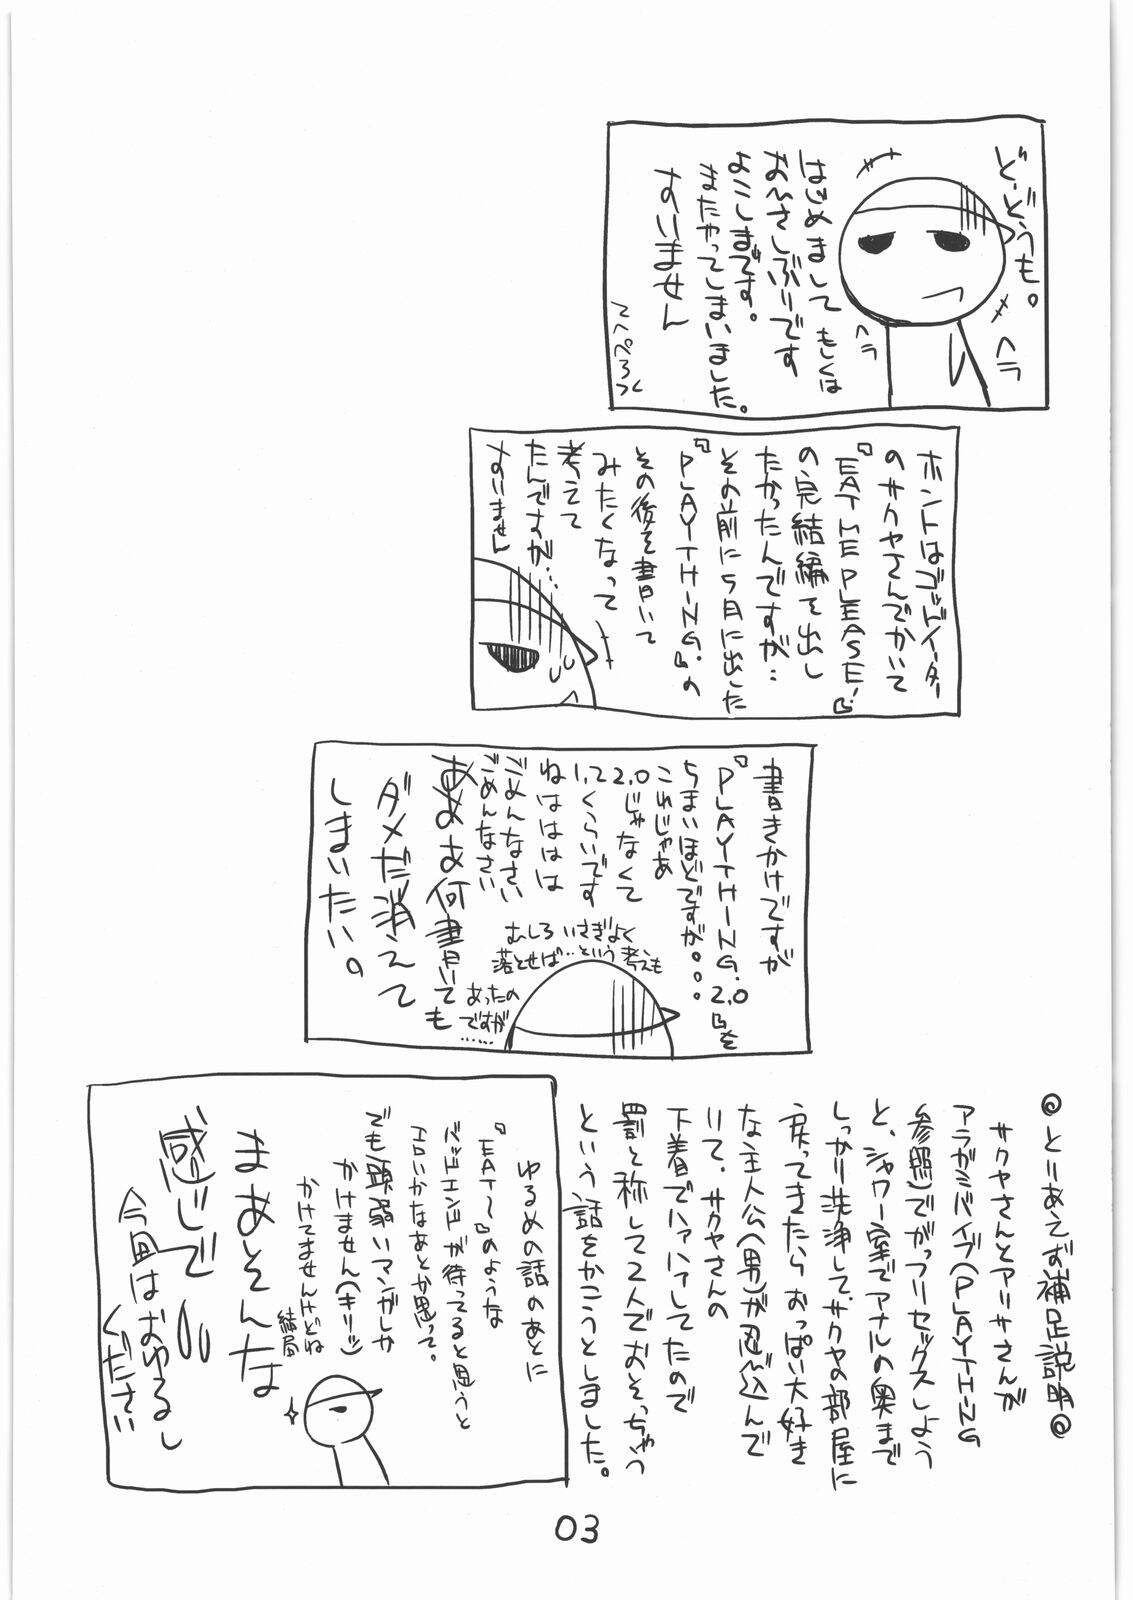 ど、どうも。
はじめまして もしくは
おひさしぶりです
よこしまです。
またやってしまいました。
すいません
ヘラ
ヘラ
ホントはゴッドイーター
のサクヤさんでかいて
『EAT ME PLEASE!』
の完結編を出し
たかったんですが…
その前に5月に出した
『PLAYTHING.』の
その後を書いて
みたくなって
考えて
たんですが…
すいません
書きかけですが
『PLAYTHING.2.0』を
これじゃあ
2.0じゃなくて
1.てくらいです
ねはははは
ごめんなさい
ごめんなさい
ああぁ何書いても
ダメだ消えて
しまいたい。
むしろ いさぎよく
落とせば…という考えも
あったの
ですが
……
◎とりあえず補足説明◎
サクヤさんとアリサさんが
アラガミバイブ(PLAYTHING
参照)でがっつりセックスしよう
と、シャワー室でアナルの奥まで
しっかり洗浄して、サクヤの部屋に
戻ってきたら おっぱい大好き
な主人公(男)が忍び込んで
いて、サクヤさんの
下着でハァハァしてたので
罰と称して2人でおそっちゃう
という話をかこうとしました。
ゆるめの話のあとに
『EAT〜』のような
バッドエンドが待ってると思うと
エロいかなあとか思って。
でも頭弱いマンガしか
かけません(キリッ)
かけてませんけどね
結局
まあそんな
感じで
今回はおゆるし
ください
03